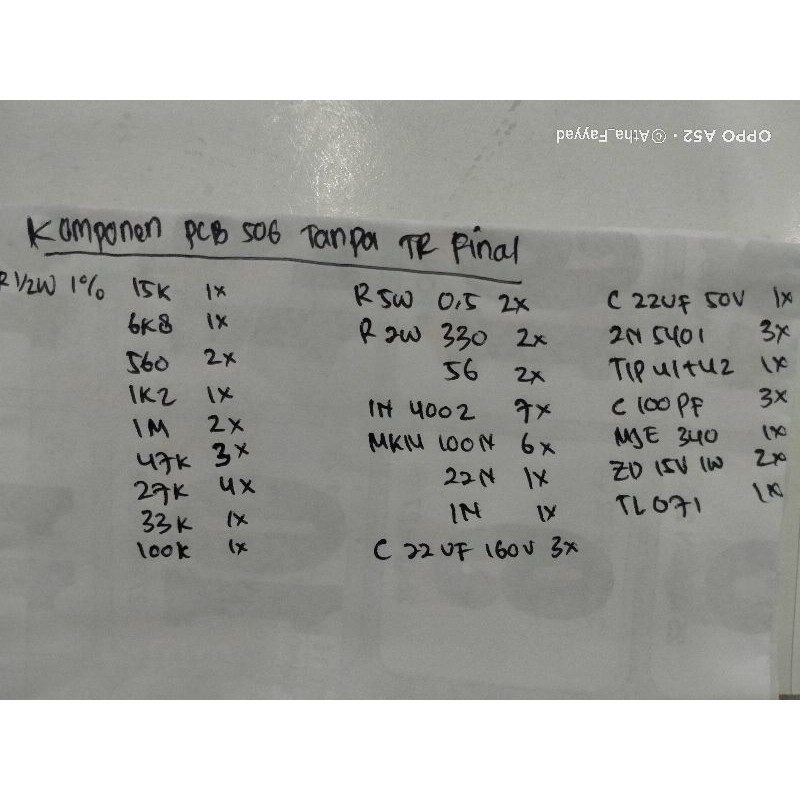 OPPO A52 · ©Atha_Fayyad
Komponen PCB 506 Tanpa TR Final
R 1/2W 1% 15K 1x
6K8 1x
560 2x
1K2 1x
1M 2x
47K 3x
27K 4x
33K 1x
100K 1x
R 5W 0,5 2x
R 2W 330 2x
56 2x
IN 4002 7x
MKM 100N 6x
22N 1x
1N 1x
C 22UF 160V 3x
C 22UF 50V 1x
2N 5401 3x
TIP 41+42 1x
C 100PF 3x
MJE 340 1x
ZD 15V 1W 2x
TL071 1x